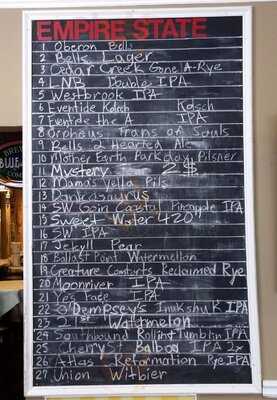 EMPIRE STATE
1 Oberon Bells
2 Bells Lager
3 Cedar Creek Gone A-Rye
4 LNB Double IPA
5 Westbrook IPA
6 Eventide Kolsch Kolsch
7 Eventide the A IPA
8 Orpheus Trans of Souls
9 Bells 2 Hearted Ale
10 Mother Earth Park day Pilsner
11 Mystery 2$
12 Mamas Yella Pils
13
14 SW Goin Coastal Pineapple IPA
15 Sweet Water 420
16 SW IPA
17 Jekyll Pear
18 Ballast Point Watermellon
19 Creature Comforts Reclaimed Rye
20 Moonriver IPA
21 Yes Face IPA
22 O'Dempsey's Inukshuk IPA
23 21st Watermelon
24 Southbound Rolling Tumblin IPA
25 Cherry St Balboa IPA 2x
26 Atlas Reformation Rye IPA
27 Union Witbier
BLUE